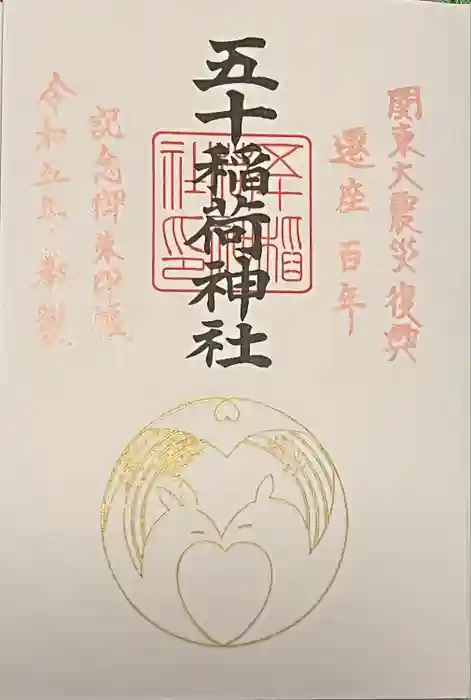 関東大震災復興
遷座 百年
五十稲荷神社
五十稲
荷神
社印
記念御
令和五年